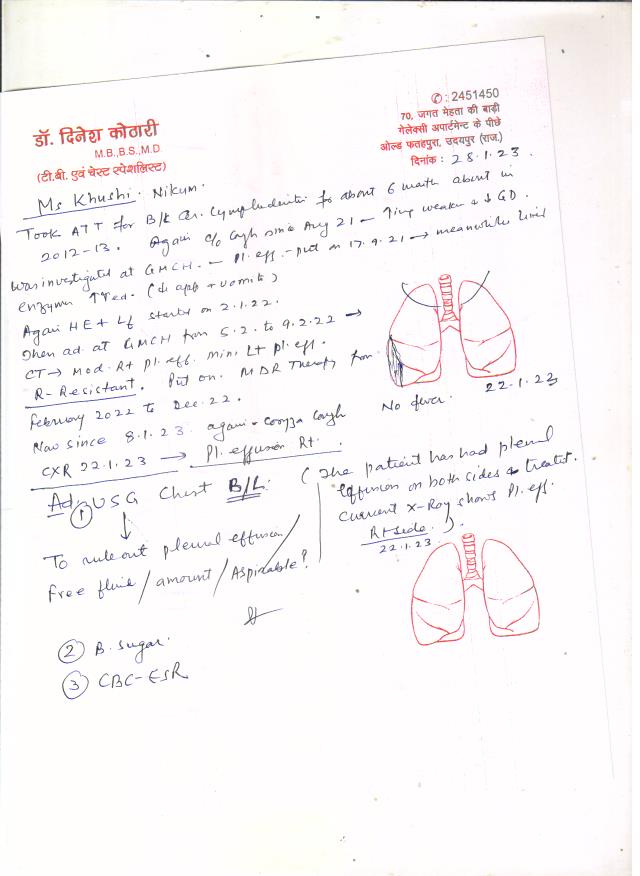 ✆ : 2451450
डॉ. दिनेश कोठारी
70, जगत मेहता की बाड़ी
M.B.,B.S.,M.D
गेलेक्सी अपार्टमेन्ट के पीछे
(टी.बी. एवं चेस्ट स्पेशलिस्ट)
ओल्ड फतहपुरा, उदयपुर (राज.)
दिनांक : 28.1.23.
Ms Khushi. Nikum.
Took ATT for B/L Cer. Lymphadenitis for about 6 month about in
2012-13. Again c/o Cough since Aug 21 - weaker
Was investigated at GMCH. - Pl. eff. - put on 17.9.21 → meanwhile liver
enzymes ↑red. (↓ app + vomits)
Again HE + Lf started on 2.1.22.
Then ad. at GMCH from 5.2. to 9.2.22 →
CT → Mod. Rt pl. eff. mini. Lt pl. eff.
R-Resistant. Put on MDR Therapy from
February 2022 to Dec. 22.
Now since 8.1.23 again - Cough No fever. 22.1.23
CXR 22.1.23 → Pl. effusion Rt.
Ad. ① USG Chest B/L. (The patient has had pleural
effusion on both sides & treated.
Current X-Ray shows Pl. eff.
Rt side.).
22.1.23.
↓
To rule out pleural effusion/
free fluid/amount/Aspirable?
② B. Sugar.
③ CBC-ESR